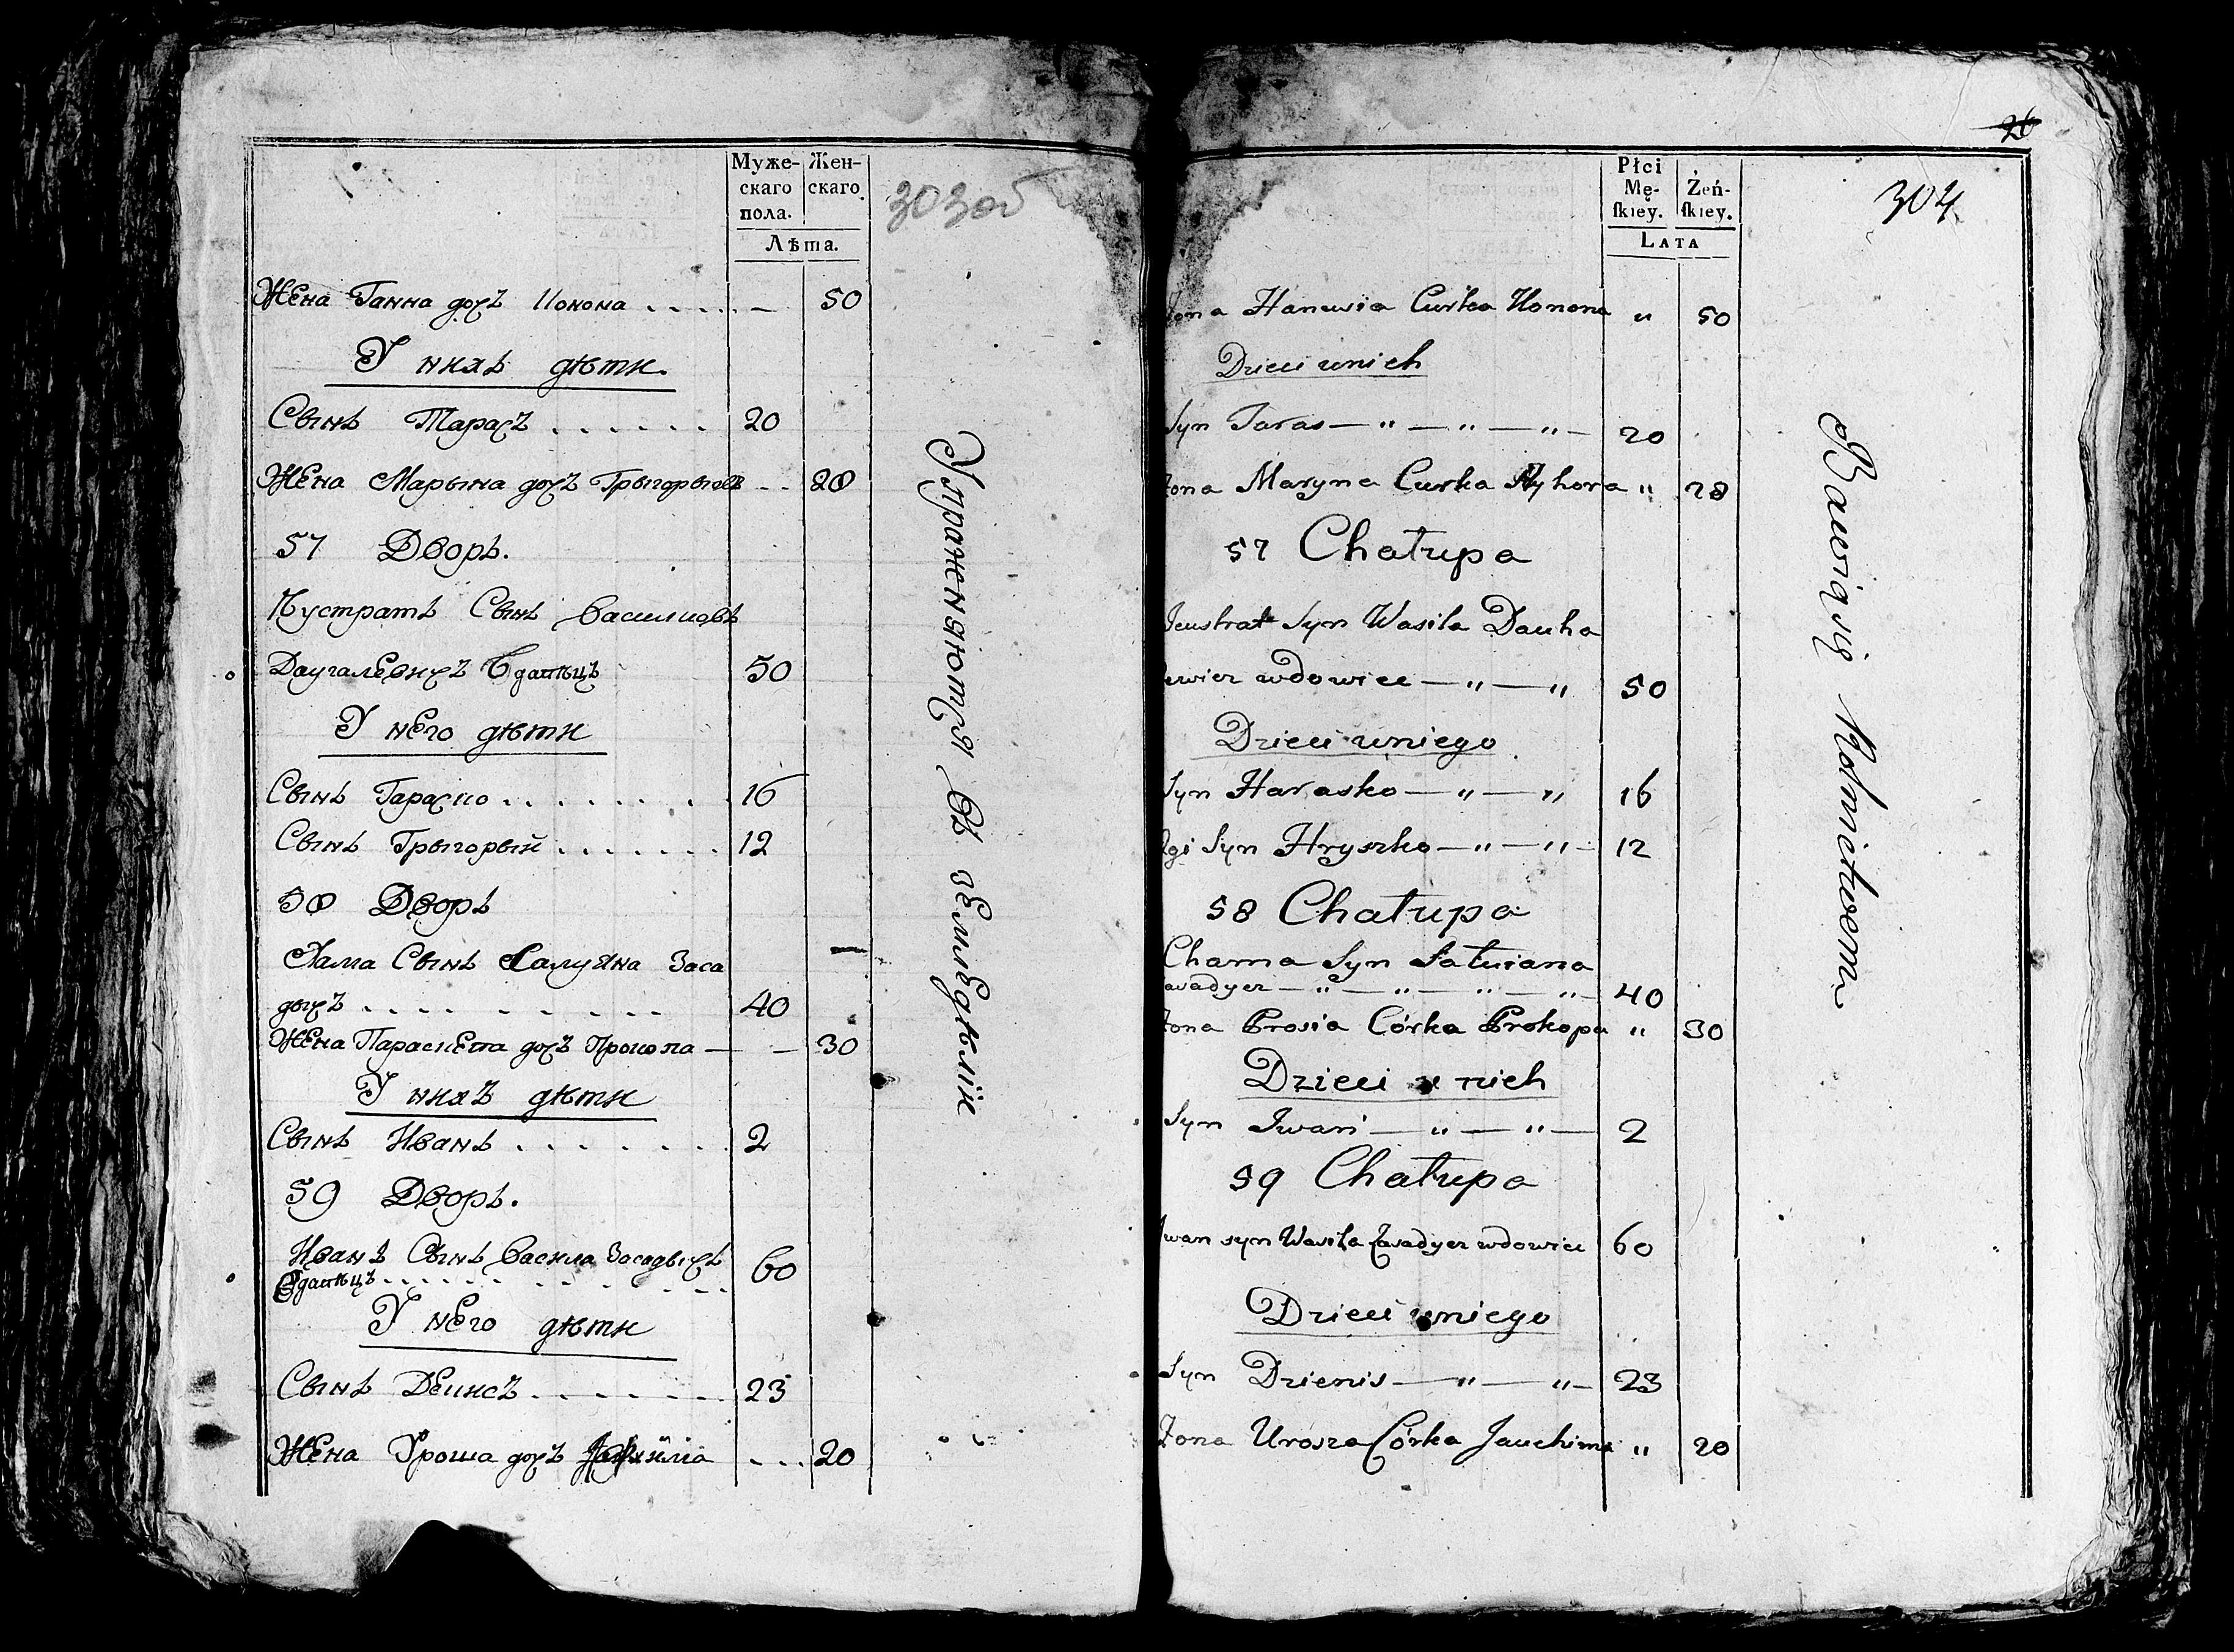 Муже-
скаго
пола.
Жен-
скаго
Лѣта.
303 об
Жена Ганна дочъ Конона - 50
У нихъ дѣти.
Сынъ Тарасъ 20
Жена Марына дочъ Грыгорыева 28
57 Дворъ.
Кустратъ Сынъ Василиовъ
Даугалевичъ Вдавѣцъ 50
У него дѣти
Сынъ Гараско 16
Сынъ Грыгорый 12
58 Дворъ
Хама Сынъ Салуяна Заса
дычъ 40
Жена Параскета дочъ Прокопа — — 30
У нихъ дѣти
Сынъ Иванъ 2
59 Дворъ.
Иванъ Сынъ Васила Засадычъ 60
Вдавѣцъ
У него дѣти
Сынъ Денисъ 23
Жена Уроша дочъ 20
Упражняются Въ земледѣліи
26
Płci
Mę-
ſkiey.
Żeń-
ſkiey.
LATA
304
Żona Hanusia Curka Konona " 50
Dzieci u nich
Syn Taras — " — " — " — 20
Żona Maryna Curka Ryhora " 28
57 Chałupa
Jeustrat Syn Wasila Dauha
lewicz wdowiec — " — " 50
Dzieci u niego
Syn Harasko — " — " 16
2gi Syn Hryszko — " — " — 12
58 Chałupa
Chama Syn Sałuiana
asadycz — " — " — " — " — 40
Żona Prosia Córka Prokopa " 30
Dzieci u nich
Syn Iwan — " — " — 2
59 Chałupa
Iwan syn Wasila Zasadycz wdowiec 60
Dzieci u niego
Syn Dzienis — " — " — 23
Żona Urosza Córka Jauchima " 20
Bawią się Rolnictwem